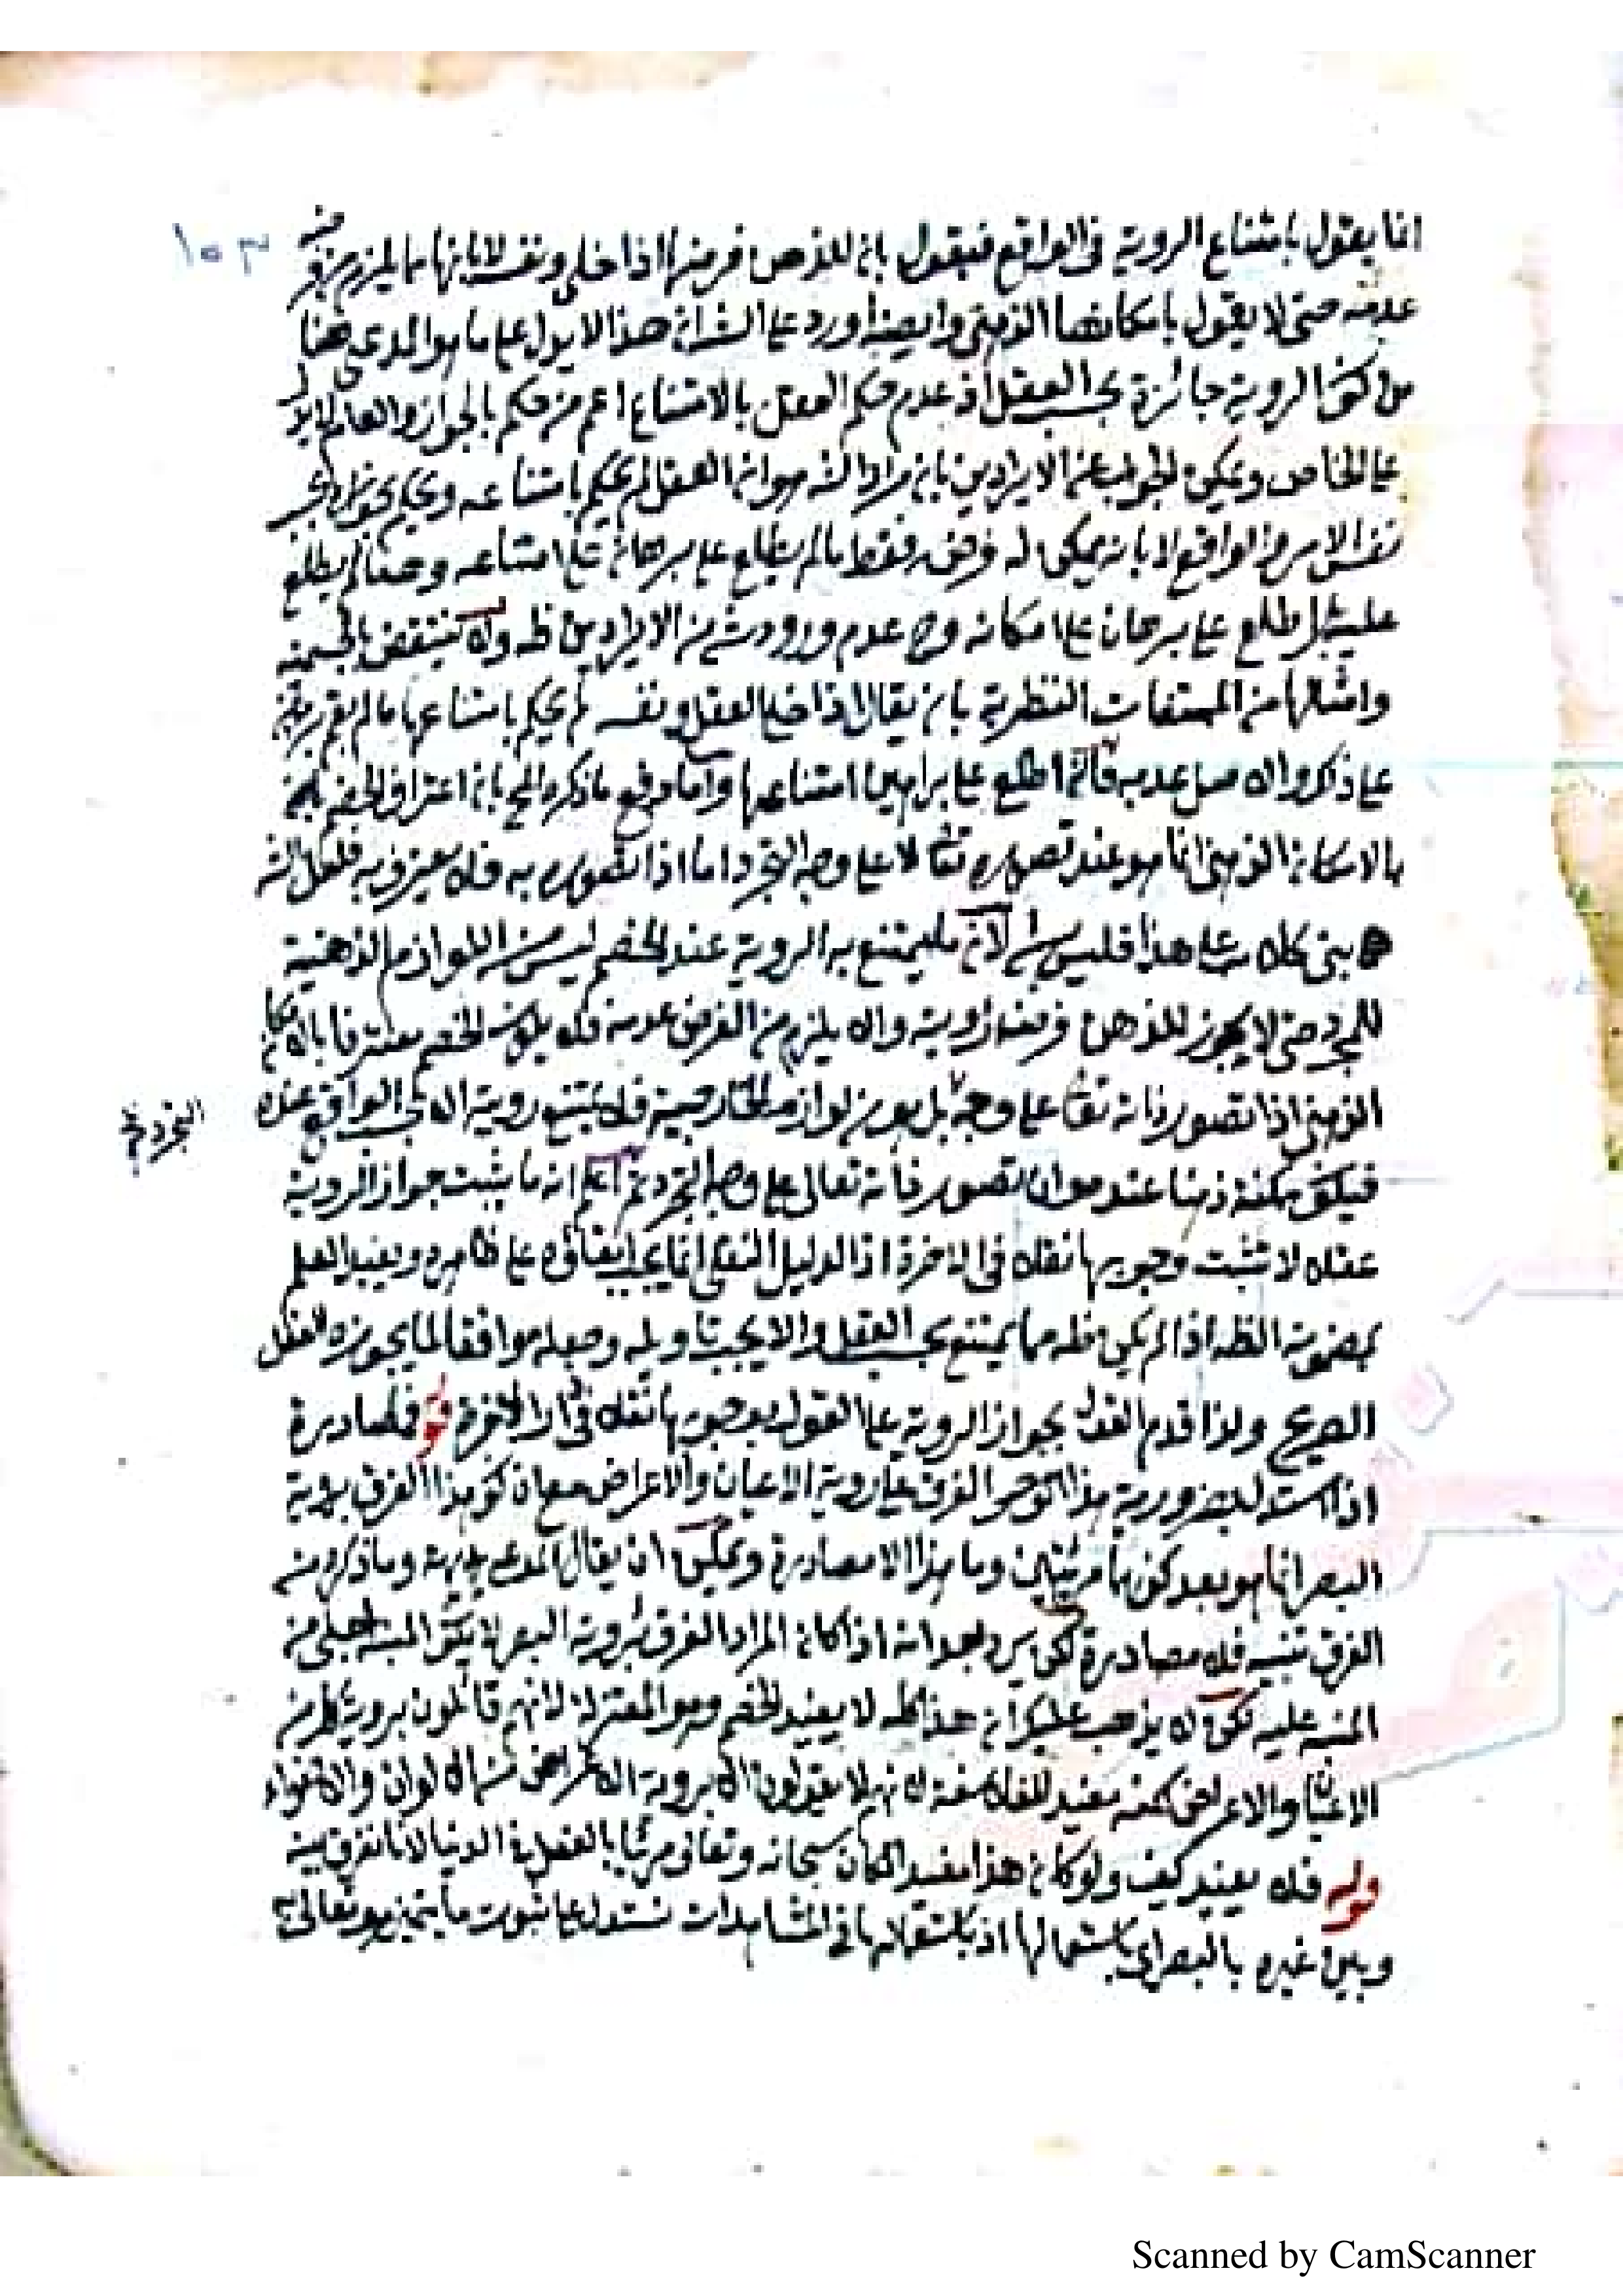 ١٥٣
انما يقول بامتناع الروية فى الواقع فيقول بان للذهن فرضها اذا خلى ونفسه لا بانها مما لم يلزم من فرضه
عدمه حتى لا يقول بامكانها الذهنى وايضا اورد على الش ان هذا لا يدل على ما هو المدعى هنا
من كون الروية جائزة بحسب العقل اذ عدم حكم العقل بالامتناع اعم من حكم بالجواز والعام لا يدل
على الخاص ويمكن الجواب عن الايرادين بان مراد الش هو ان العقل لم يحكم بامتناعه ويحكم بجوازه بحسب
نفس الامر والواقع لا بانه يمكن له فرضه فقط ما لم يطلع على برهان على امتناعه وهنا لم يطلع
عليه بل اطلع على برهان على امكانه وح عدم ورود شئ من الايرادين ظه ولا ينتقض بالجسمية
وامثالها من الممتنعات النظرية بان يقال اذا خلى العقل ونفسه لم يحكم بامتناعها ما لم يقم برهان
على ذلك والاصل عدمه فانه اطلع على براهين امتناعها واما دفع ما ذكره المح بان اعتراف الخصم
بالامكان الذهنى انما هو عند تصوره تعا لا على وجه التجرد اما اذا تصوره به فلا يعترف به فلعل الش
بنى كلامه على هذا فليس بشئ لان ما يمتنع به الروية عند الخصم ليس من اللوازم الذهنية
للمجرد حتى لا يجوز للذهن فرض رؤيته والا يلزم من الفرض عدمه فلا يكون الخصم معترفا بالامكان
الذهنى اذا تصور ذاته تعا على وجه بل هو من لوازمه الخارجية فلا يمتنع رويته الا بحسب الواقع عنده
التجرد صح
فيكون ممكنة ذهنا عنده وان تصور ذاته تعالى على وجه التجرد ثم اعلم انه ما يثبت جواز الروية
عقلا لا تثبت وجوبها نقلا فى الاخرة اذ الدليل النقلى انما يجب ابقاؤه على ظاهره ويفيد العلم
بمضمونه الظه اذا لم يكن ظه مما يمتنع بحسب العقل والا يجب تاويله وجعله موافقا لما يجوزه العقل
الصريح ولذا قدم القول بجواز الروية على القول بوجوبها نقلا فى دار الاخرة قوله فمصادرة
اذ استدل بضرورية هذا الفرق على روية الاعيان والاعراض مع ان كون هذا الفرق بروية
البصر انما هو بعد كونهما مرئيتين وما هذا الا مصادرة ويمكن ان يقال المدعى بديهية وما ذكره من
الفرق تنبيه فلا مصادرة لكن يرد بعد انه اذا كان المراد الفرق بروية البصر لا يكون المنبه اجلى من
المنبه عليه لا يذهب عليك ان هذا كله لا يفيد الخصم وهو المعتزلة لانهم قائلون بروية كل من
الاعيان والاعراض لكنه مفيد للفلاسفة لانهم لا يقولون الا بروية الاعراض من الالوان والاضواء
قوله فلا يفيد كيف ولو كان هذا مفيدا لكان سبحانه وتعالى مرئيا بالفعل فى الدنيا لانا نفرق بينه
وبين غيره بالبصر اى باستعمالها اذ باستعمالها فى المشاهدات نستدل على ثبوت ما يتميز هو تعالى
Scanned by CamScanner